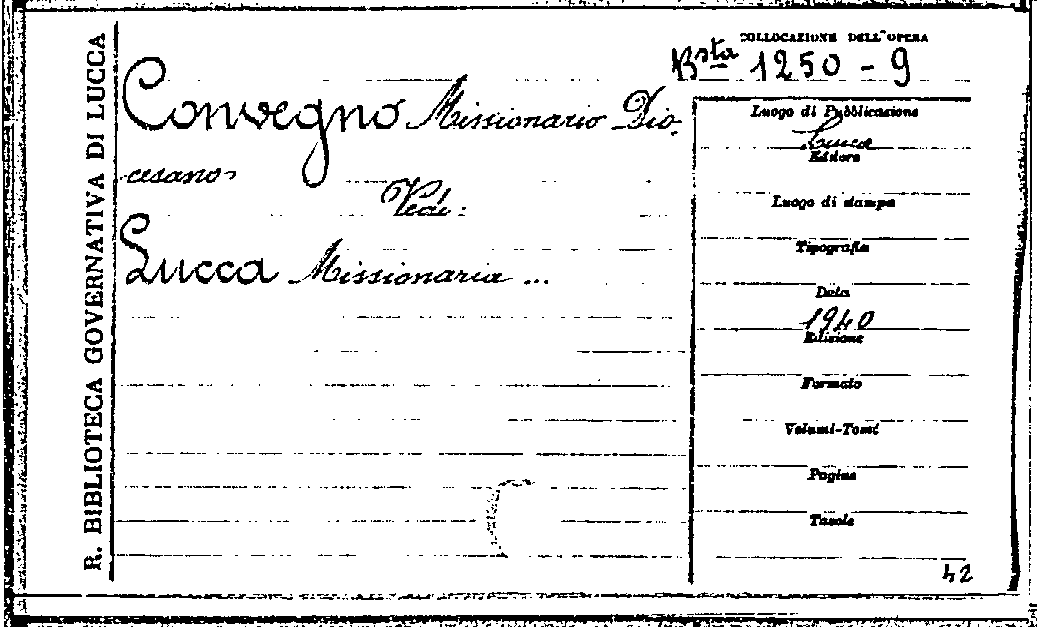 R. BIBLIOTECA GOVERNATIVA DI LUCCA
COLLOCAZIONE DELL'OPERA
Bsta 1250 - 9
Convegno Missionario Dio-
cesano
Vedi:
Lucca Missionaria ...
Luogo di Pubblicazione
Lucca
Editore
Luogo di stampa
Tipografia
Data
1940
Edizione
Formato
Volumi-Tomi
Pagine
Tavole
42